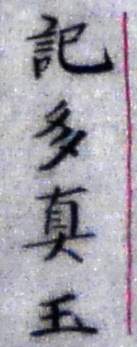 記多真玉